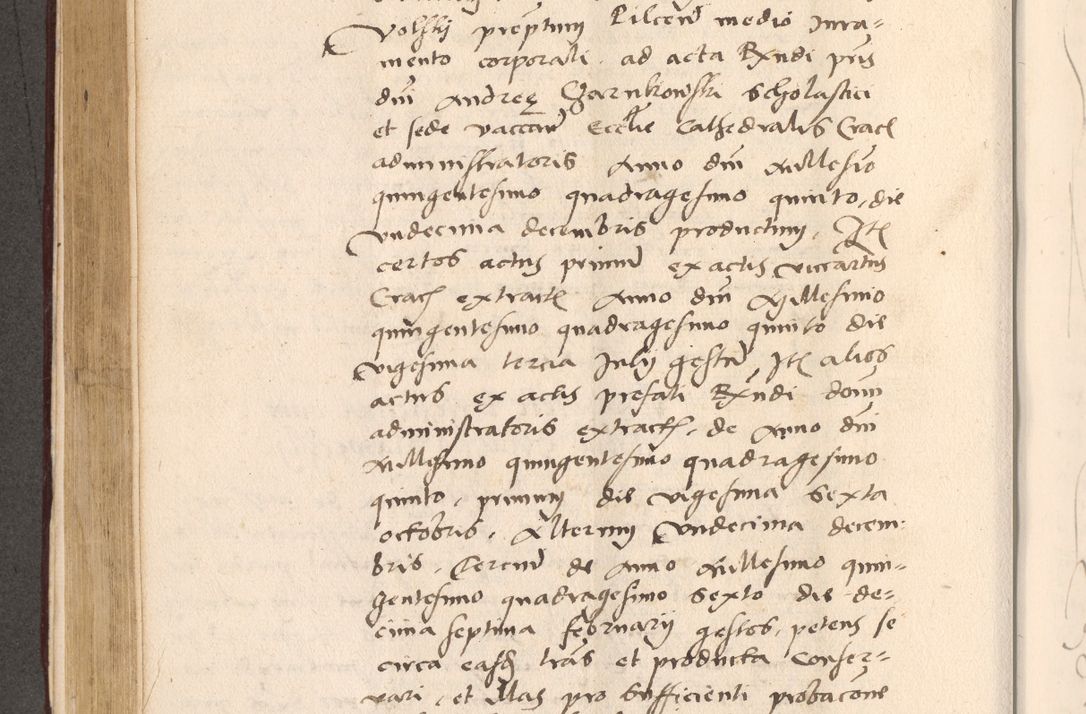 Volsky preptum Pilcen medio Jura-
mento corporali ad acta Rxndi pris
dni Andree Czarnkowski Scholastici
et sede vaccan Eccelie Cathedralis Crac
administratoris Anno dni Millesio
quingentesimo quadragesimo quinto, die
vndecima decembris productum, Ite
certos actus primum ex actis vicariatus
Crac extracte Anno dni Millesimo
quingentesimo quadragesimo quinto die
vigesima tercia Julij gestum, Ite alios
actus ex actis prefati Rxndi domi
administratoris extract, de Anno dni
Millesimo quingentesimo quadragesimo
quinto, primum die vigesima Sexta
octobris, Alterum Vndecima decem-
bris, Tercium de Anno Millesimo quin-
gentesimo quadragesimo Sexto die de-
cima septima februarij gestos, petens se
circa easd tras et producta Conser-
vari, et Illas pro Sufficienti probacone